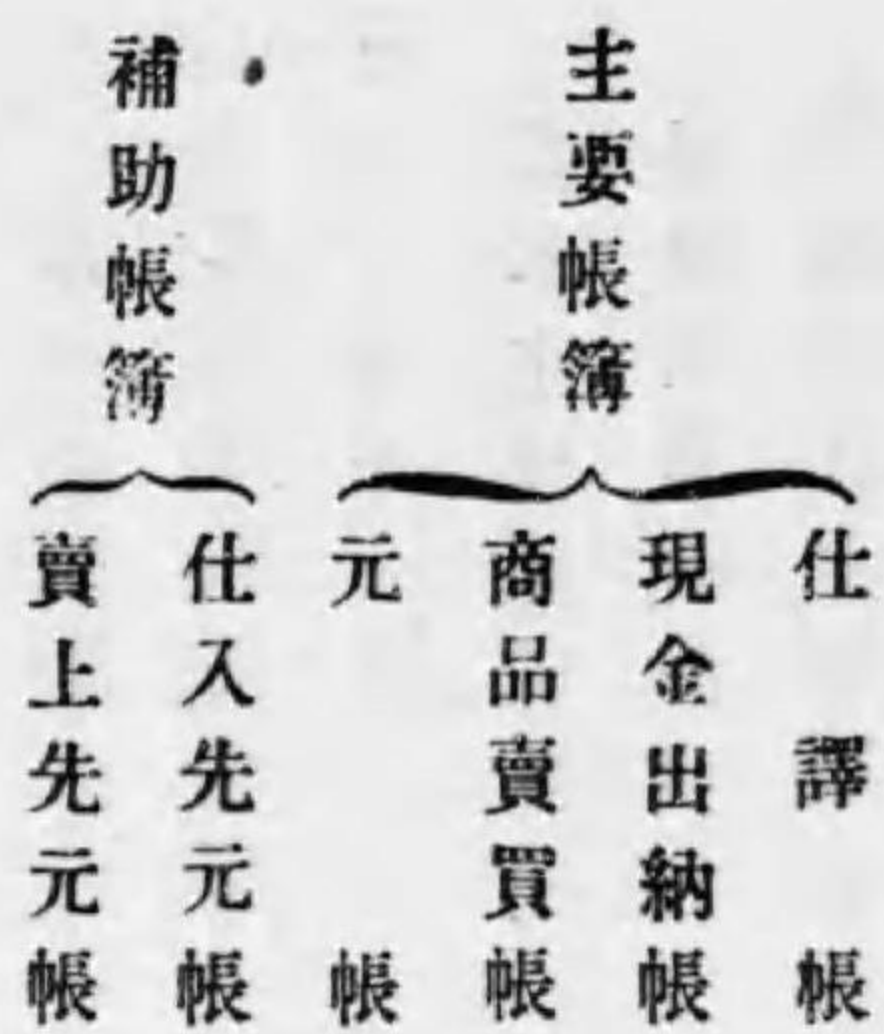 主要帳簿
仕譯帳
現金出納帳
商品賣買帳
元帳
補助帳簿
仕入先元帳
賣上先元帳